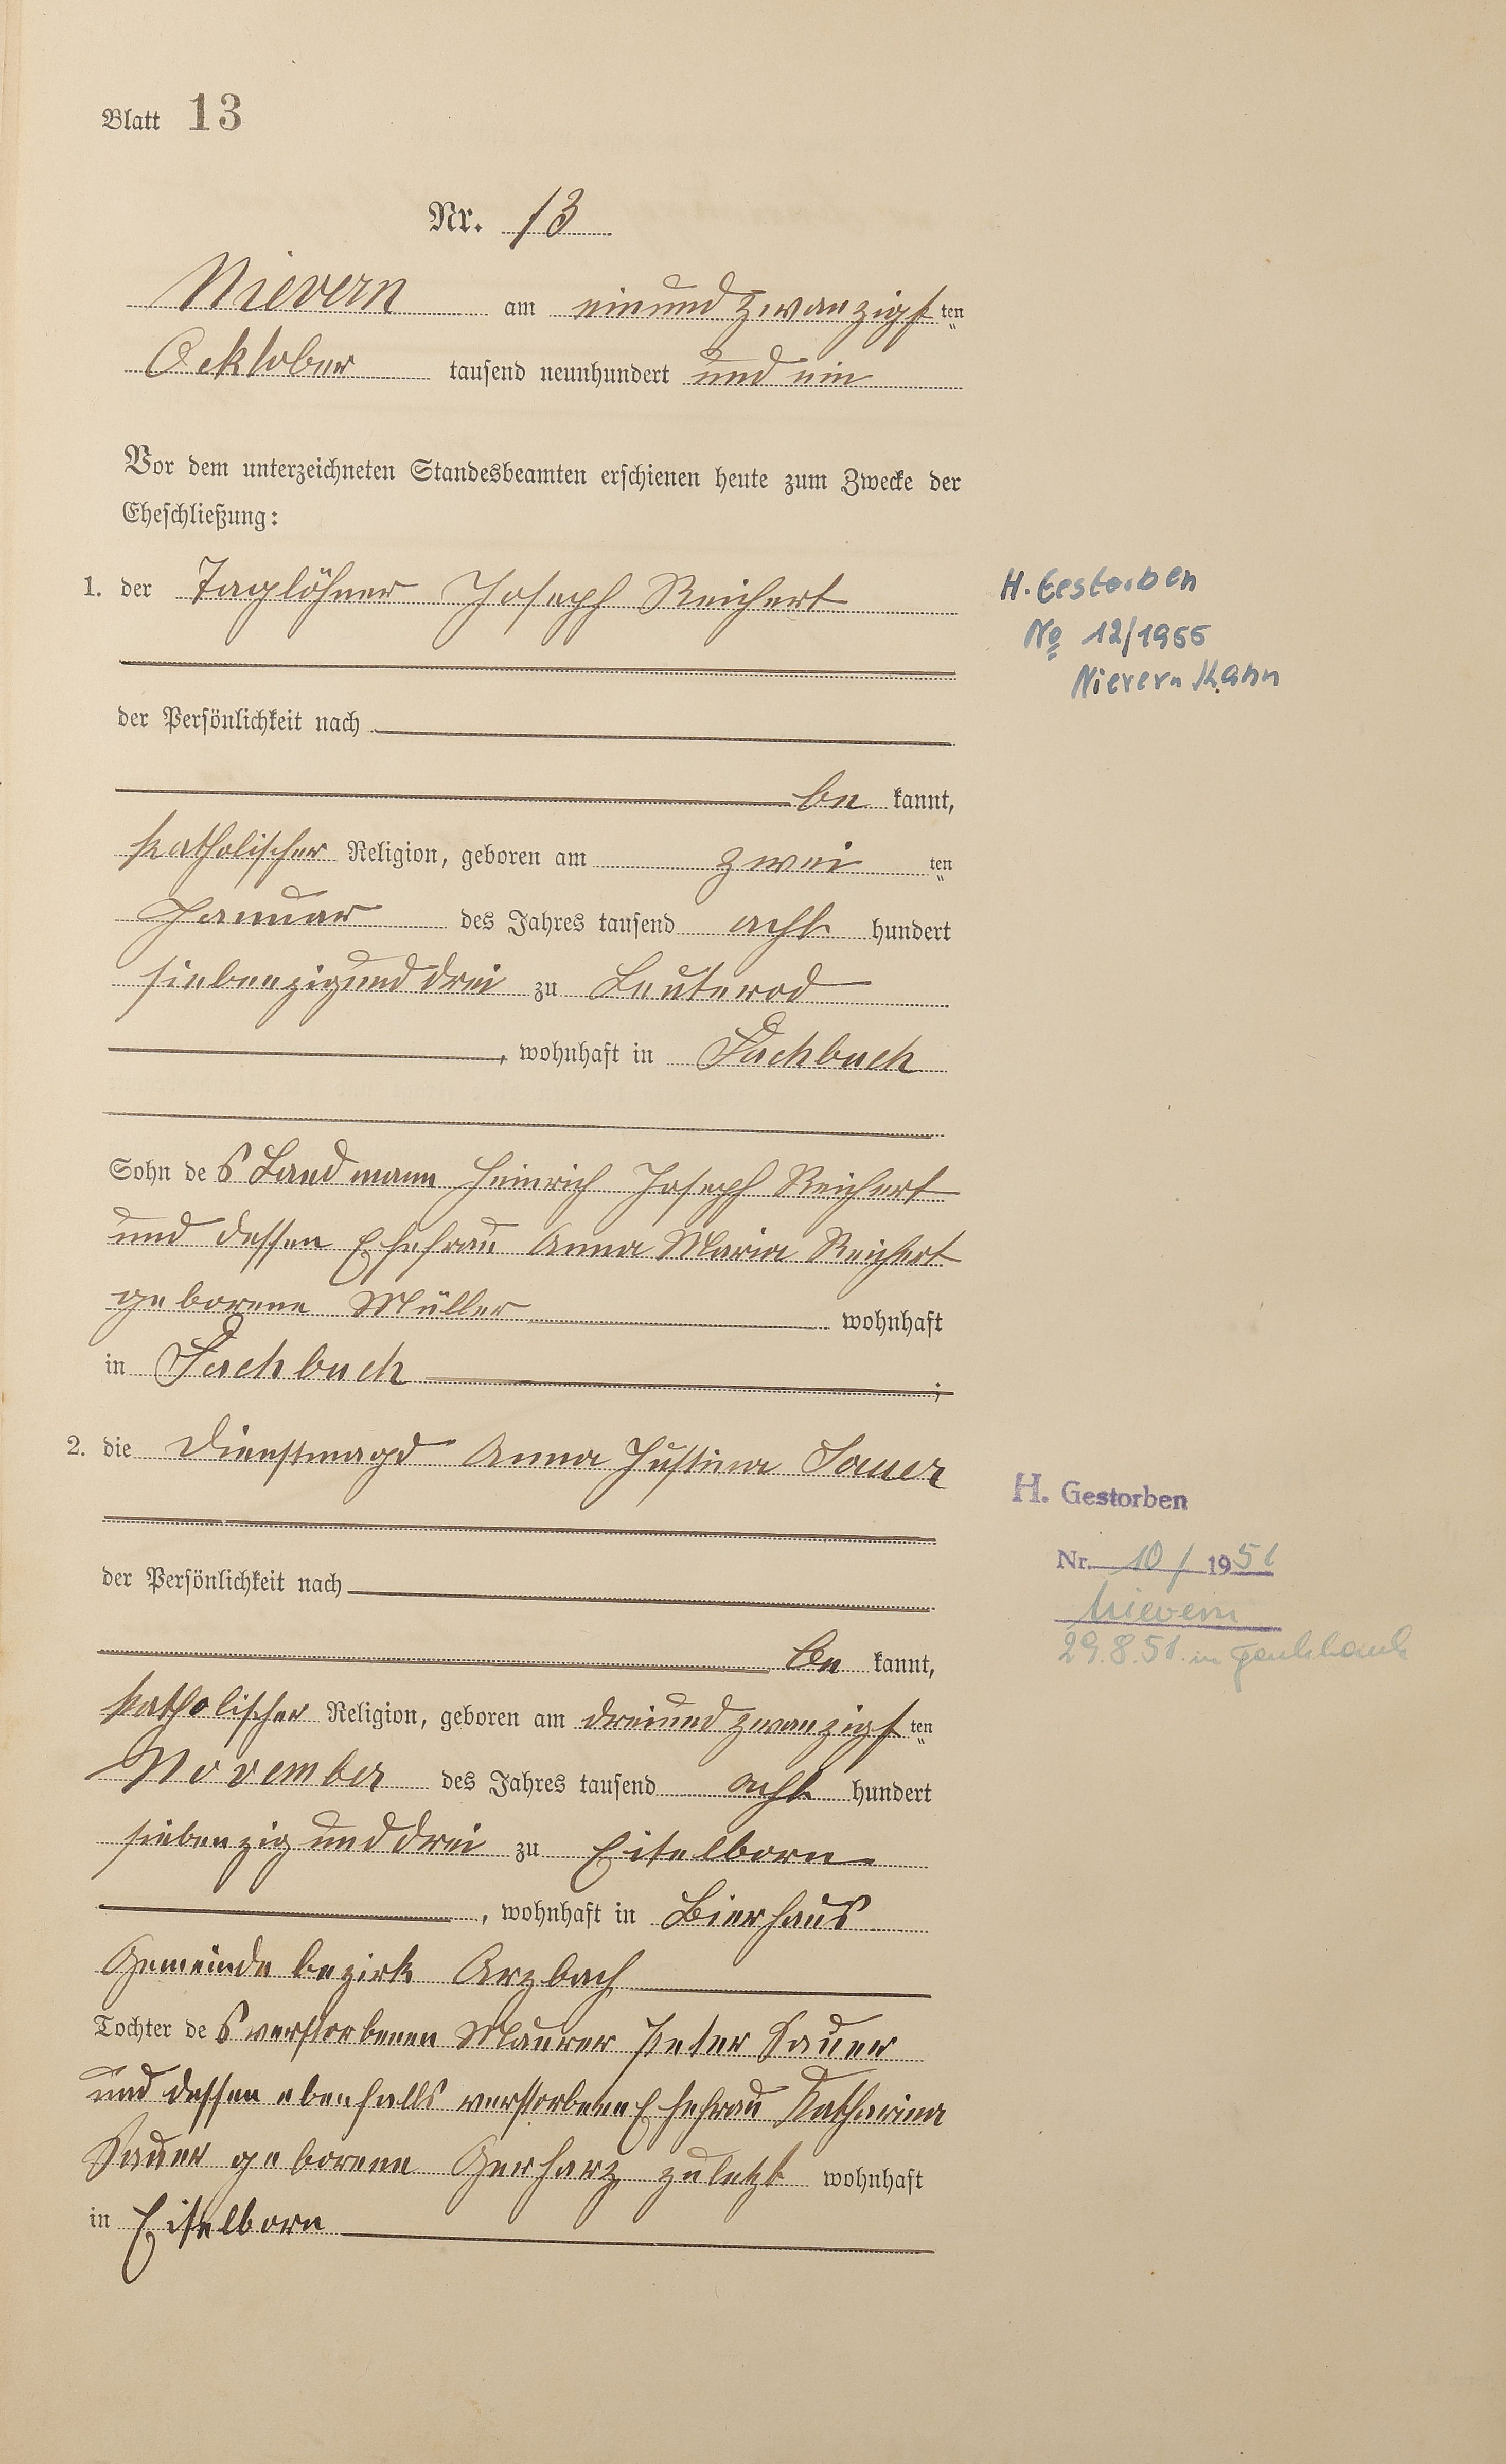 Blatt 13
Nr. 13
Nievern am einundzwanzigsten
Ocktober tausend neunhundert und ein
Vor dem unterzeichneten Standesbeamten erschienen heute zum Zwecke der
Eheschließung:
1. der Taglöhner Joseph Reichert
H. Gestorben
No 12/1955
Nievern /Lahn
der Persönlichkeit nach
be kannt,
katholischer Religion, geboren am zwei ten
Januar des Jahres tausend acht hundert
siebenzigunddrei zu Leuterod
, wohnhaft in Fachbach
Sohn des Landmann Heinrich Joseph Reichert
und dessen Ehefrau Anna Maria Reichert
geborene Müller wohnhaft
in Fachbach ;
2. die Dienstmagd Anna Justina Sauer
H. Gestorben
Nr. 10/ 1951
Nievern
29.8.51. in
der Persönlichkeit nach
be kannt,
katholischer Religion, geboren am dreiundzwanzigsten
November des Jahres tausend acht hundert
siebenzig und drei zu Eitelborn
, wohnhaft in Bierhaus
Gemeindebezirk Arzbach
Tochter des verstorbenen Maurer Peter Sauer
und dessen ebenfalls verstorbene Ehefrau Katharina
Sauer geborene Gerharz zuletzt wohnhaft
in Eitelborn